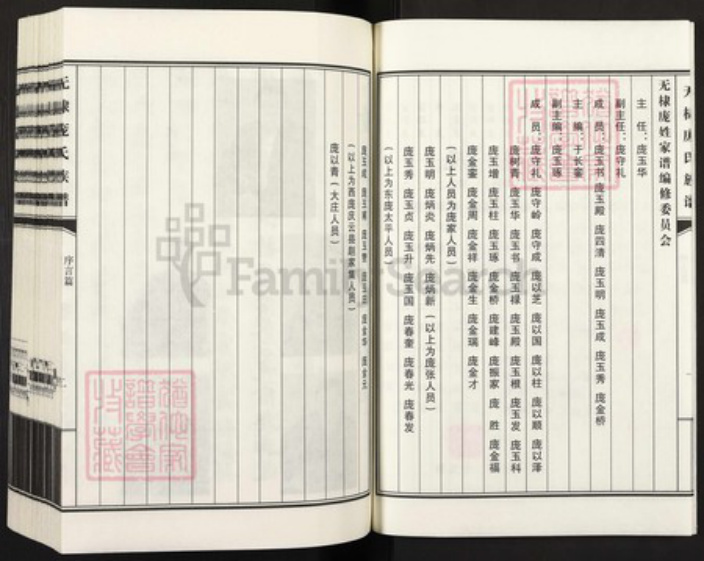 无棣庞氏族谱
无棣庞姓家谱编修委员会
主 任：庞玉华
副主任：庞守礼
成 员：庞玉书 庞玉殿 庞四清 庞玉明 庞玉成 庞玉秀 庞金桥
主 编：于长銮
副主编：庞玉琢
成 员：庞守礼 庞守岭 庞守成 庞以芝 庞以国 庞以柱 庞以顺 庞以泽
庞树青 庞玉华 庞玉书 庞玉禄 庞玉殿 庞玉根 庞玉发 庞玉科
庞玉增 庞玉柱 庞玉琢 庞金桥 庞建峰 庞振家 庞 胜 庞金福
庞金銮 庞金周 庞金祥 庞金生 庞金瑞 庞金才
（以上人员为庞家人员）
庞玉明 庞炳炎 庞炳先 庞炳新（以上为庞张人员）
庞玉秀 庞玉贞 庞玉升 庞玉国 庞春奎 庞春光 庞春发
（以上为东庞太平人员）
庞玉成
（以上为西庞庆云县尉家集人员）
庞以青（大庄人员）
无棣庞氏族谱
序言篇
FamilySearch